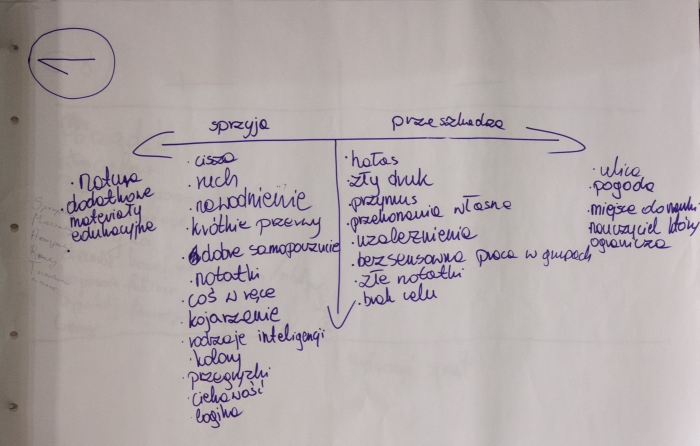 sprzyja
przeszkadza
· Natura
· dodatkowe
materiały
edukacyjne
·
· cisza
· ruch
· nawodnienie
· krótkie przerwy
· dobre samopoczucie
· notatki
· coś w ręce
· kojarzenie
· rodzaje inteligencji
· kolory
· przegryzki
· ciekawość
· logika
· hałas
· zły druk
· przymus
· przekonania własne
· uzależnienia
· bezsensowna praca w grupach
· złe notatki
· brak celu
· ulica
· pogoda
· miejsce do nauki
· nauczyciel który
ogranicza